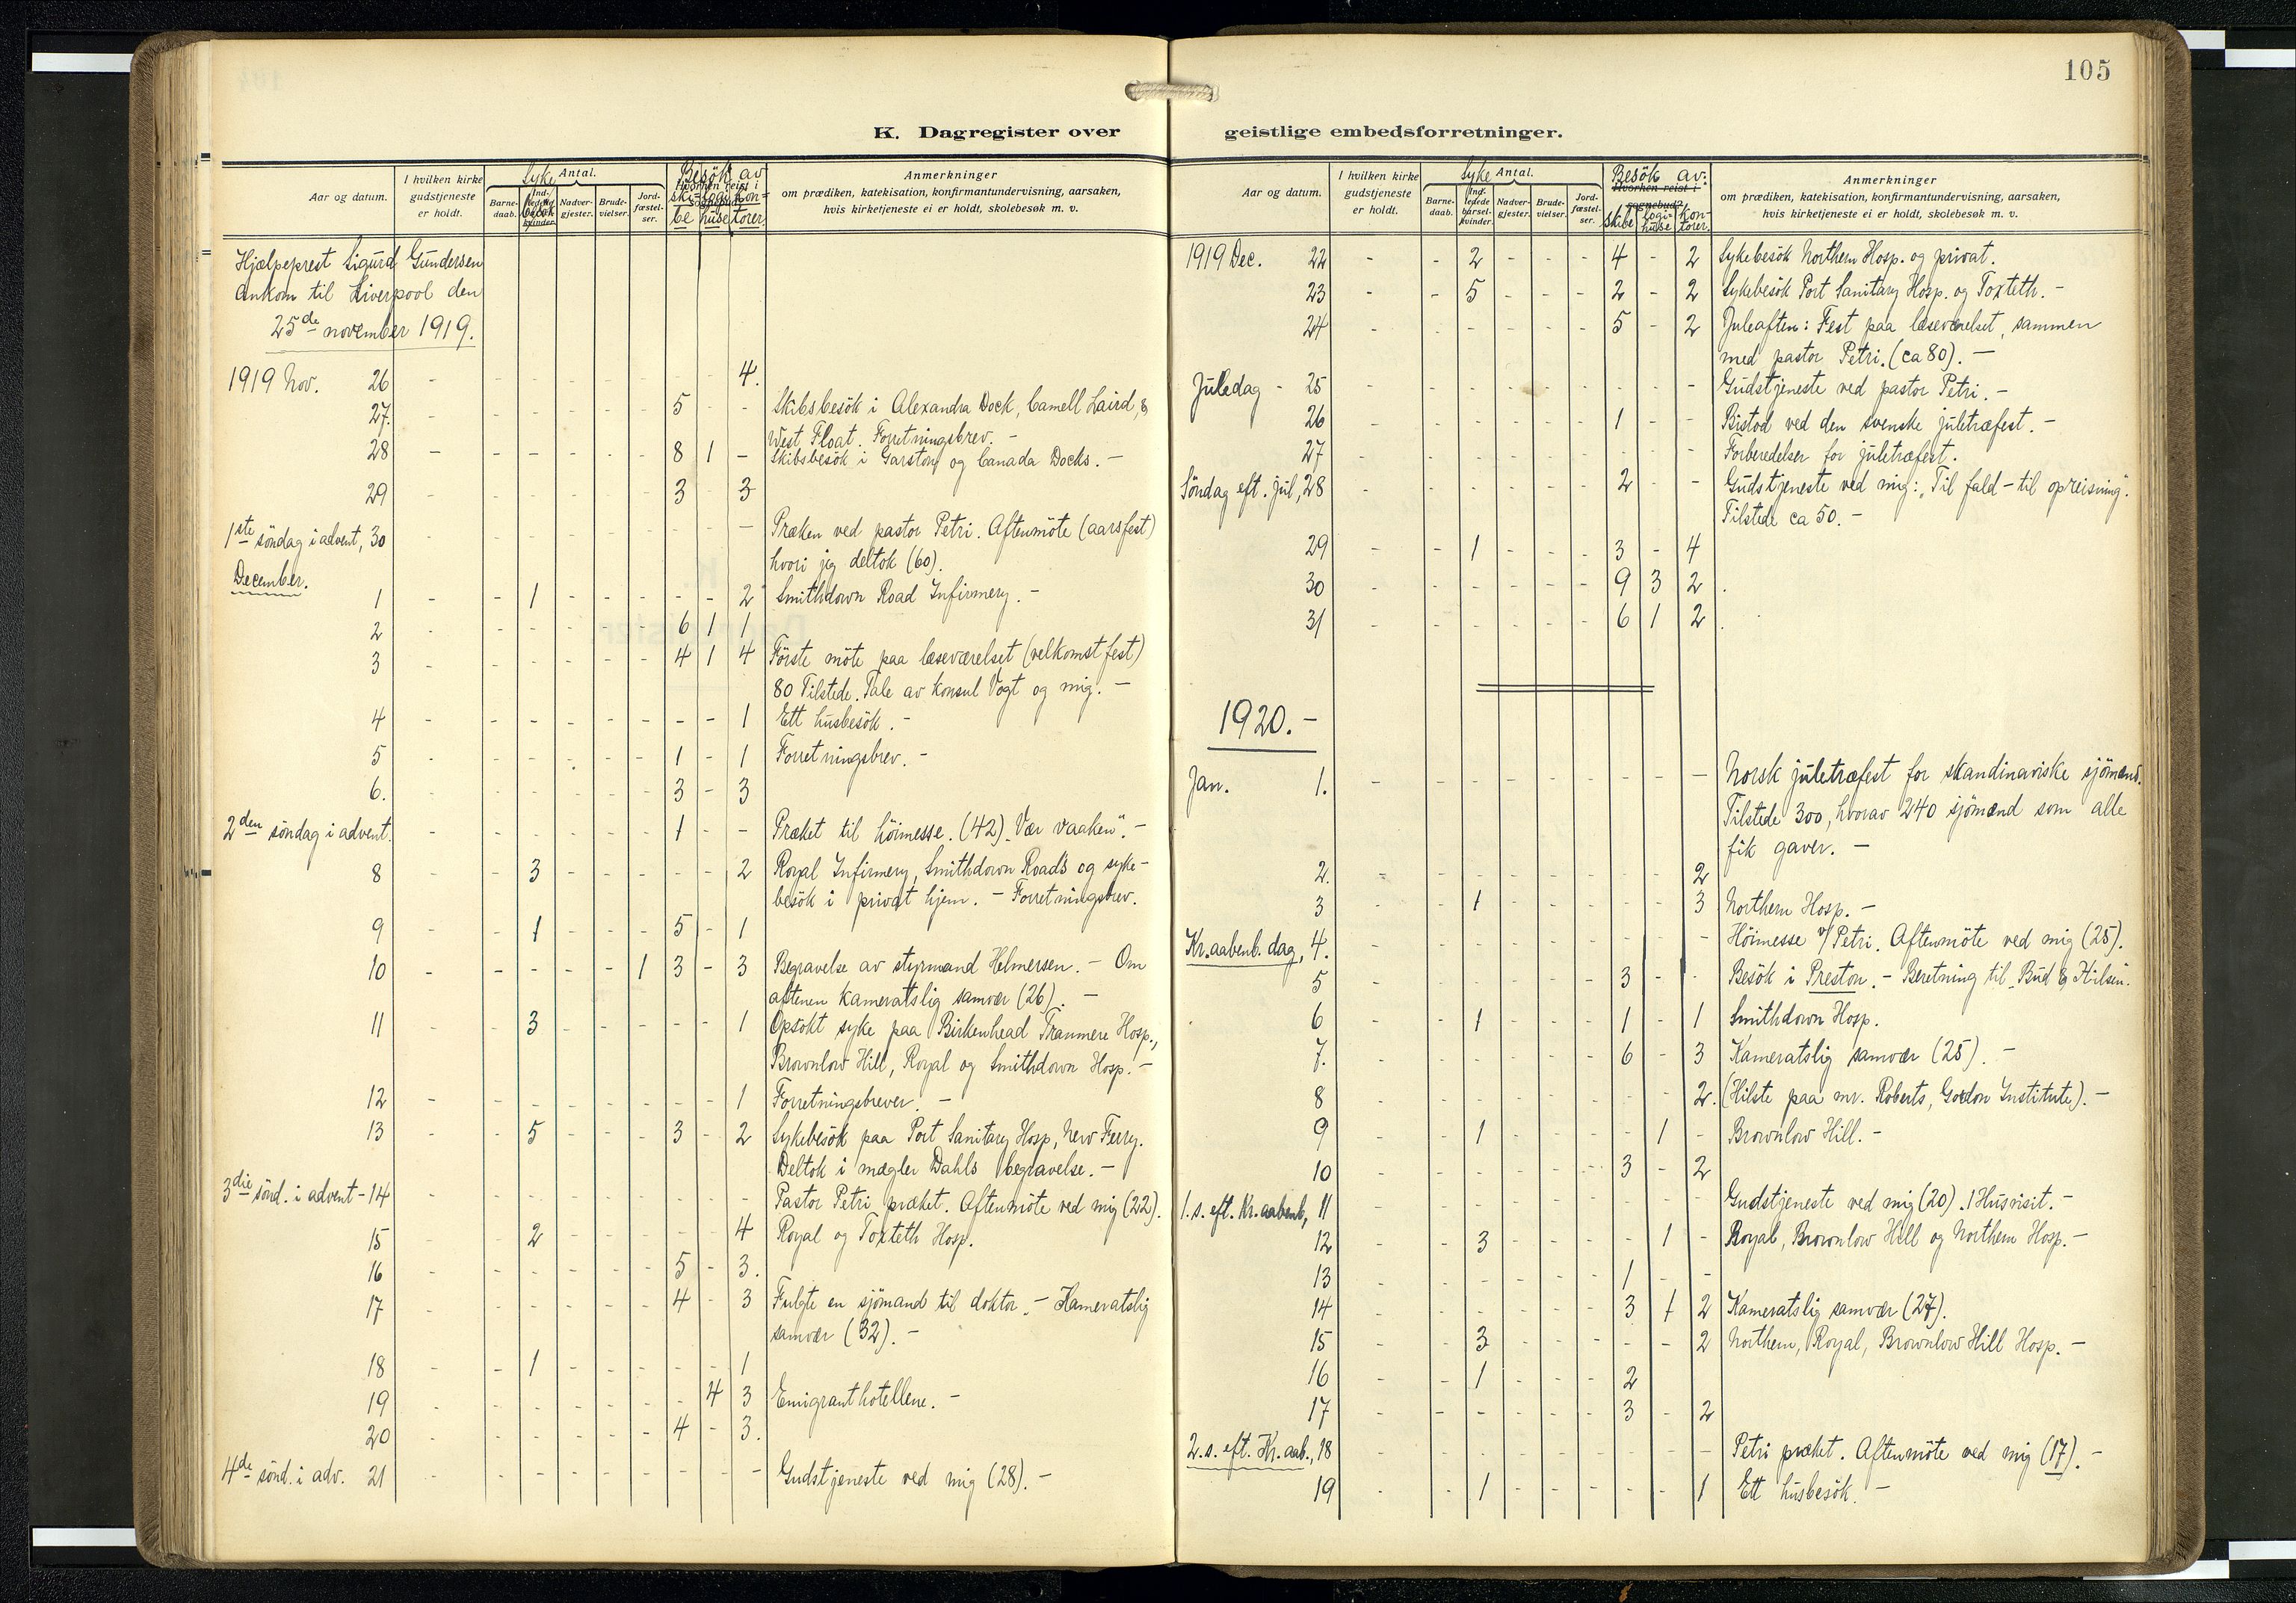 105
K. Dagregister over geistlige embedsforretninger.
Aar og datum. I hvilken kirke gudstjeneste er holdt. Syke Antal. Barne-daab. besök Nadver-gjester. Brude-vielser. Jord-fæstel-ser. Besök av ski-be logi-huse kon-torer. Anmerkninger
om prædiken, katekisation, konfirmantundervisning, aarsaken,
hvis kirketjeneste ei er holdt, skolebesøk m. v.
Hjælpeprest Sigurd Gundersen
ankom til Liverpool den
25de november 1919.
1919 Nov. 26 - - - - - - - - 4.
27. - - - - - - 5 - - Skibsbesök i Alexandra Dock, Camell Laird, &
West Float. Forretningsbrev. -
28 - - - - - - 8 1 - Skibsbesök i Garston og Canada Docks. -
29 - - - - - - 3 3
1ste söndag i advent, 30 - - - - - - - - - Præken ved pastor Petri. Aftenmöte (aarsfest)
hvori jeg deltok (60).
December.
1 - - 1 - - - - - 2 Smithdown Road Infirmery. -
2 - - - - - - 6 1 1
3 - - - - - - 4 1 4 Förste möte paa læseværelset (velkomstfest)
80 Tilstede. Tale av konsul Vogt og mig. -
4 - - - - - - - - 1 Ett husbesök. -
5 - - - - - - 1 - 1 Forretningsbrev. -
6. - - - - - - 3 - 3
2den söndag i advent. - - - - - - 1 - - Præket til höimesse. (42) „Vær vaaken". -
8 - - 3 - - - - - 2 Royal Infirmery, Smithdown Road's og syke-
besök i privat hjem. - Forretningsbrev.
9 - - 1 - - - 5 - 1
10 - - - - - 1 3 - 3 Begravelse av styrmand Helmersen. - Om
aftenen kameratslig samvær (26). -
11 - - 3 - - - - - 1 Opsökt syke paa Birkenhead Tranmere Hosp.,
Brownlow Hill, Royal og Smithdown Hosp. -
12 - - - - - - - - 1 Forretningsbrever. -
13 - - 5 - - - 3 - 2 Sykebesök paa Port Sanitary Hosp, New Ferry.
Deltok i mægler Dahls begravelse. -
3die sönd. i advent - 14 - - - - - - - - - Pastor Petri præket. Aftenmöte ved mig (22).
15 - - 2 - - - - - 4 Royal og Toxteth Hosp.
16 - - - - - - 5 - 3.
17 - - - - - - 4 - 3 Fulgte en sjömand til doktor. - Kameratslig
samvær (32). -
18 - - 1 - - - - - 1
19 - - - - - - - 4 3 Emigranthotellene. -
20 - - - - - - 4 - 3.
4de sönd. i adv. 21 - - - - - - - - - Gudstjeneste ved mig (28). -
Aar og datum. I hvilken kirke gudstjeneste er holdt. Syke Antal. Barne-daab. Ind-ledede barsel-kvinder. Nadver-gjester. Brude-vielser. Jord-fæstel-ser. Besök av: Hvorhen reist i sognebud? skibe logi-huse kon-torer. Anmerkninger
om prædiken, katekisation, konfirmantundervisning, aarsaken,
hvis kirketjeneste ei er holdt, skolebesøk m. v.
1919 Dec. 22 - - 2 - - - 4 - 2 Sykebesök Northern Hosp. og privat.
23 - - 5 - - - 2 - 2 Sykebesök Port Sanitary Hosp. og Toxteth. -
24 - - - - - - 5 - 2 Juleaften: Fest paa læseværelset, sammen
med pastor Petri. (ca 80). -
Juledag - 25 - - - - - - - - - Gudstjeneste ved pastor Petri. -
26 - - - - - - 1 - - Bistod ved den svenske juletræfest. -
27 - - - - - - - - - Forberedelser for juletræfest.
Söndag eft. jul, 28 - - - - - - 2 - - Gudstjeneste ved mig: „Til fald - til opreisning".
Tilstede ca 50. -
29 - - 1 - - - 3 - 4
30 - - - - - - 9 3 2
31 - - - - - - 6 1 2
1920. -
Jan. 1. - - - - - - - - - Norsk juletræfest for skandinaviske sjömænd.
Tilstede 300, hvorav 240 sjömænd som alle
fik gaver. -
2. - - - - - - - - 2
3 - - 1 - - - - - 3 Northern Hosp. -
Kr. aabenb. dag, 4. - - - - - - - - - Höimesse v/ Petri. Aftenmöte ved mig (25).
5 - - - - - - 3 - - Besök i Preston. - Beretning til „Bud & Hilsen".
6 - - 1 - - - 1 - 1 Smithdown Hosp.
7. - - - - - - 6 - 3 Kameratslig samvær (25). -
8 - - - - - - - - 2. (Hilste paa mr. Roberts, Gordon Institute). -
9 - - 1 - - - - 1 - Brownlow Hill. -
10 - - - - - - 3 - 2
1. s. eft. Kr. aabenb, 11 - - - - - - - - - Gudstjeneste ved mig (20). 1 Husvisit. -
12 - - 3 - - - - 1 - Royal, Brownlow Hill og Northern Hosp. -
13 - - - - - - 1 - -
14 - - - - - - 3 1 2 Kameratslig samvær (27).
15 - - 3 - - - - - 2 Northern, Royal, Brownlow Hill Hosp. -
16 - - 1 - - - 2
17 - - - - - - 3 - 2
2. s. eft. Kr. aab., 18 - - - - - - - - - Petri præket. Aftenmöte ved mig (17). -
19 - - 1 - - - - - 1 Ett husbesök. -